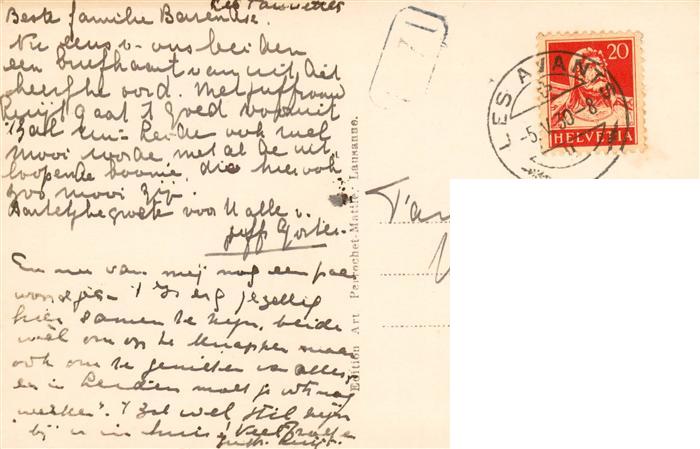 Les Fauvettes
Beste familie Barendse.
Nu eens v. ons beiden
een briefkaart van uit dit
heerlijke oord. Mejuffrouw
Kruijt gaat 't goed vooruit
't Zal in Leiden ook wel
mooi worde, met al de uit-
loopende boome, die hier ook
zoo mooi zijn.
Hartelijke groete voor U alle v.
juff Gorter.
En nu van mij nog een paar
woordjes. 't Is erg gezellig
hier samen te zijn, beide
wel om op te knappen maar
ook om te genieten van alles,
en in Leiden moet je wtr nog
werken. 't Zal wel stil zijn
bij u in huis! Veel groeten
juffr. Kruijt.
Edition Art Perrochet-Matile, Lausanne.
LES AVANTS
-5.V.30-8
20
HELVETIA